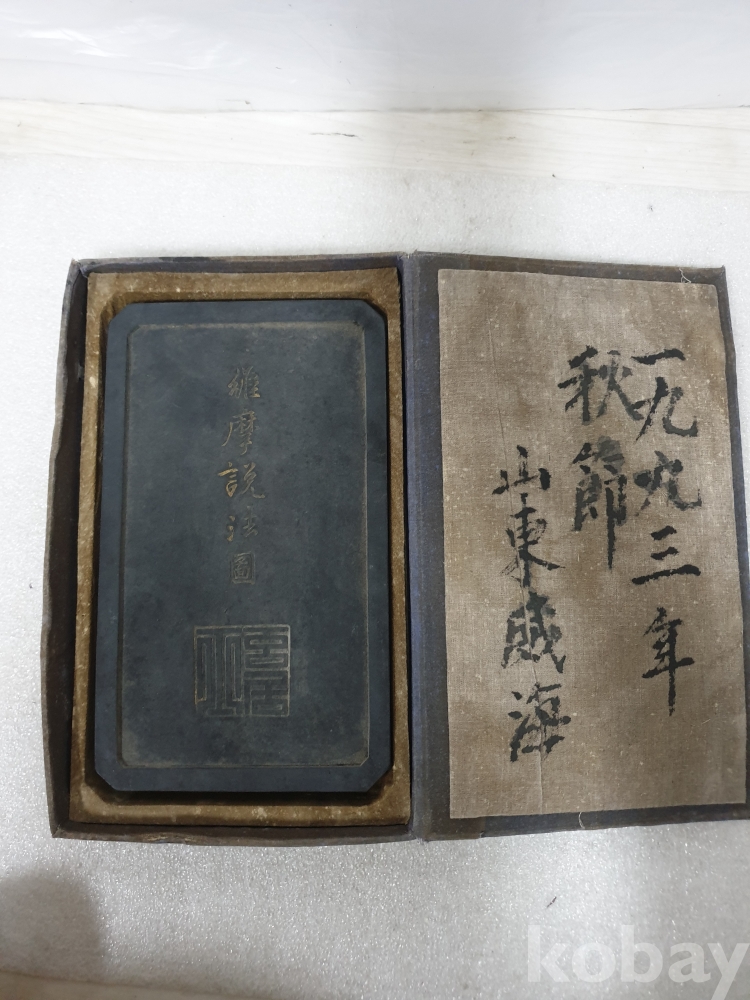 維摩説法圖
一九九三年
秋節
山東威海
kobay